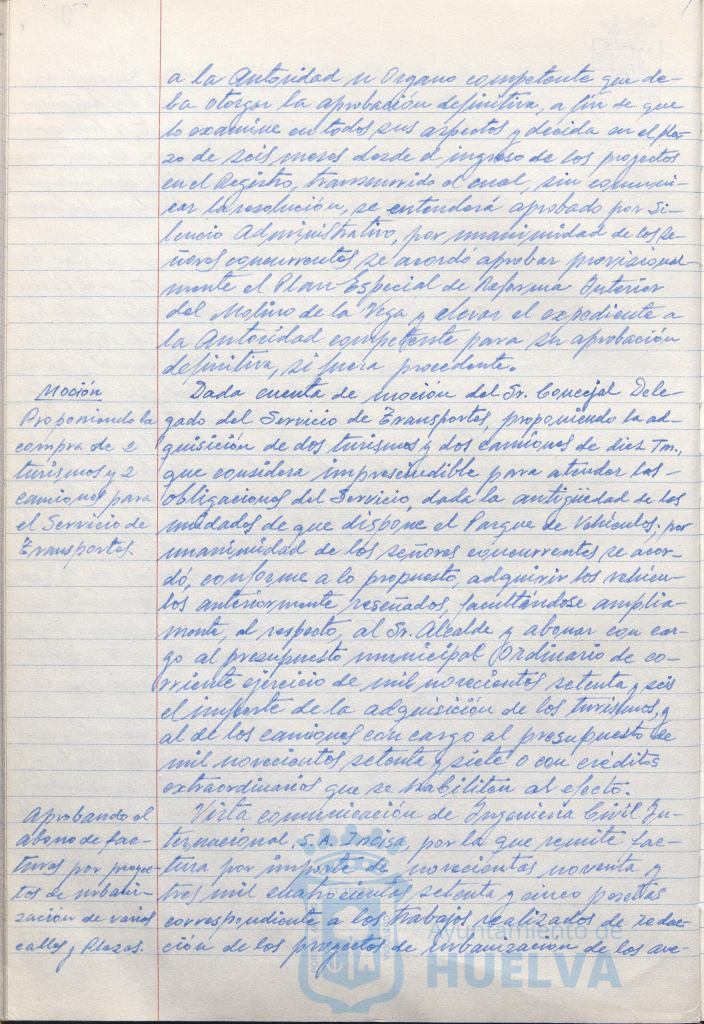 a la Autoridad u Organo competente que de-
ba otorgar la aprobación definitiva, a fin de que
lo examine en todos sus aspectos y decida en el pla-
zo de seis meses desde el ingreso de los proyectos
en el Registro, transcurrido el cual, sin comuni-
car la resolución, se entenderá aprobado por Si-
lencio Administrativo, por unanimidad de los se-
ñores concurrentes se acordó aprobar provisional-
mente el Plan Especial de Reforma Interior
del Molino de la Vega y elevar el expediente a
la Autoridad competente para su aprobación
definitiva, si fuera procedente.
Moción
Proponiendo la
compra de 2
turismos y 2
camiones para
el Servicio de
Transportes.
Dada cuenta de moción del Sr. Concejal Dele-
gado del Servicio de Transportes, proponiendo la ad-
quisición de dos turismos y dos camiones de diez Tm.,
que considera imprescindible para atender las
obligaciones del Servicio, dada la antigüedad de las
unidades de que dispone el Parque de Vehículos, por
unanimidad de los señores concurrentes se acor-
dó, conforme a lo propuesto, adquirir los vehícu-
los anteriormente reseñados, facultándose amplia-
mente, al respecto, al Sr. Alcalde y abonar con car-
go al presupuesto municipal Ordinario de co-
rriente ejercicio de mil novecientos setenta y seis
el importe de la adquisición de los turismos, y
al de los camiones con cargo al presupuesto de
mil novecientos setenta y siete o con créditos
extraordinarios que se habiliten al efecto.
Aprobando el
abono de fac-
turas por proyec-
tos de urbani-
zación de varias
calles y Plazas.
Vista comunicación de Ingeniería Civil In-
ternacional, S.A. Incisa, por la que remite fac-
tura por importe de novecientas noventa y
tres mil cuatrocientas setenta y cinco pesetas
correspondiente a los trabajos realizados de redac-
ción de los proyectos de urbanización de las ave-
Ayuntamiento de
HUELVA